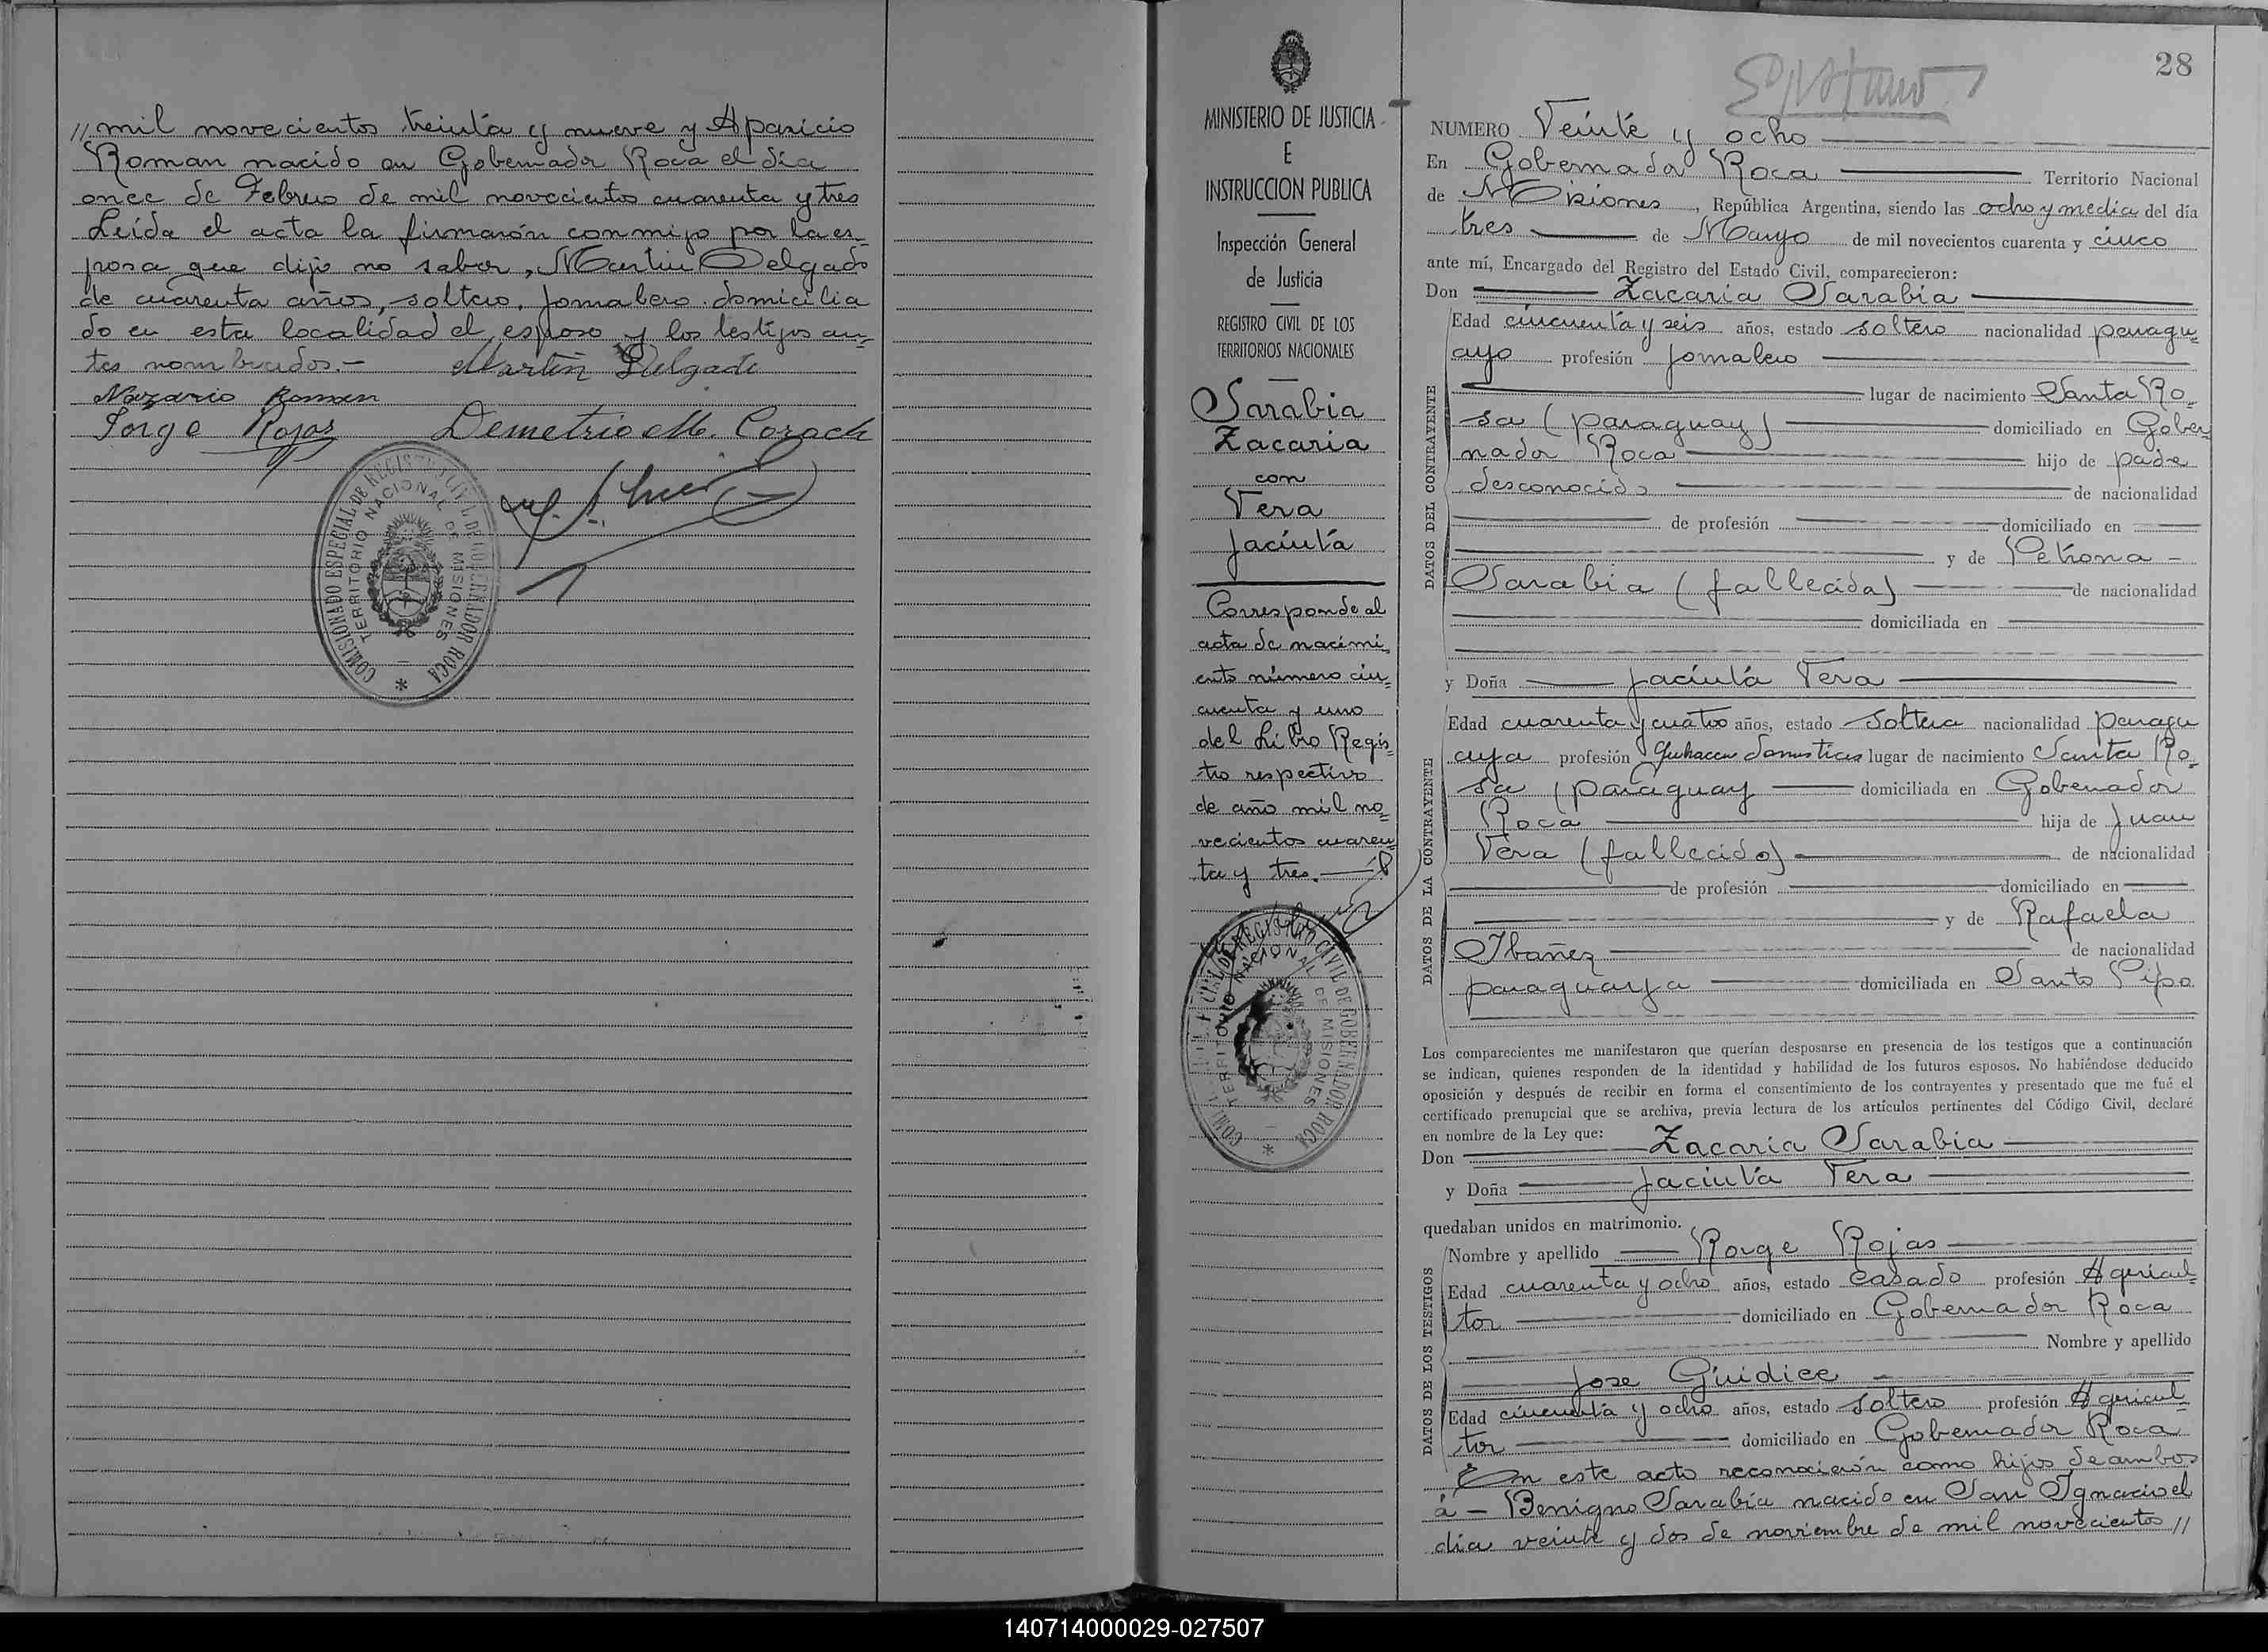 // mil novecientos treinta y nueve y Aparicio
Roman nacido en Gobernador Roca el día
once de Febrero de mil novecientos cuarenta y tres
Leída el acta la firmarón conmigo por la es=
posa que dijo no saber, Martin Delgado
de cuarenta años, soltero, jornalero domicilia
do en esta localidad el esposo y los testigos an=
tes nombrados.- Martín Delgado
Nazario Roman
Jorge Rojas Demetrio M. Corach
COMISIONADO ESPECIAL DE REGISTRO CIVIL DE GOBERNADOR ROCA
TERRITORIO NACIONAL DE MISIONES
MINISTERIO DE JUSTICIA
E
INSTRUCCION PUBLICA
Inspección General
de Justicia
REGISTRO CIVIL DE LOS
TERRITORIOS NACIONALES
Sarabia
Zacaria
con
Vera
Jacinta
Corresponde al
acta de nacimi
ento número cin=
cuenta y uno
del Libro Regis=
tro respectivo
de año mil no=
vecientos cuaren=
ta y tres.
REGISTRO CIVIL DE GOBERNADOR ROCA
TERRITORIO NACIONAL DE MISIONES
28
NUMERO Veinte y ocho
En Gobernador Roca Territorio Nacional
de Misiones, República Argentina, siendo las ocho y media del día
tres de Mayo de mil novecientos cuarenta y cinco
ante mí, Encargado del Registro del Estado Civil, comparecieron:
Don Zacaria Sarabia
DATOS DEL CONTRAYENTE
Edad cincuenta y seis años, estado soltero nacionalidad paragu
ayo profesión jornalero
lugar de nacimiento Santa Ro=
sa (Paraguay) domiciliado en Gober
nador Roca hijo de padre
desconocido de nacionalidad
de profesión domiciliado en
y de Petrona -
Sarabia (fallecida) de nacionalidad
domiciliada en
y Doña Jacinta Vera
DATOS DE LA CONTRAYENTE
Edad cuarenta y cuatro años, estado soltera nacionalidad paragu
aya profesión Quehaceres domesticos lugar de nacimiento Santa Ro=
sa (Paraguay domiciliada en Gobernador
Roca hija de Juan
Vera (fallecido) de nacionalidad
de profesión domiciliado en
y de Rafaela
Ibañez de nacionalidad
paraguaya domiciliada en Santo Pipo
Los comparecientes me manifestaron que querían desposarse en presencia de los testigos que a continuación
se indican, quienes responden de la identidad y habilidad de los futuros esposos. No habiéndose deducido
oposición y después de recibir en forma el consentimiento de los contrayentes y presentado que me fué el
certificado prenupcial que se archiva, previa lectura de los artículos pertinentes del Código Civil, declaré
en nombre de la Ley que:
Don Zacaria Sarabia
y Doña Jacinta Vera
quedaban unidos en matrimonio.
DATOS DE LOS TESTIGOS
Nombre y apellido Rorge Rojas
Edad cuarenta y ocho años, estado casado profesión Agricul=
tor domiciliado en Gobernador Roca
Nombre y apellido
Jose Guidice
Edad cincuenta y ocho años, estado soltero profesión Agricul
tor domiciliado en Gobernador Roca
En este acto reconocierón como hijos de ambos
á - Benigno Sarabia nacido en San Ignacio el
día veinte y dos de noviembre de mil novecientos //
140714000029-027507